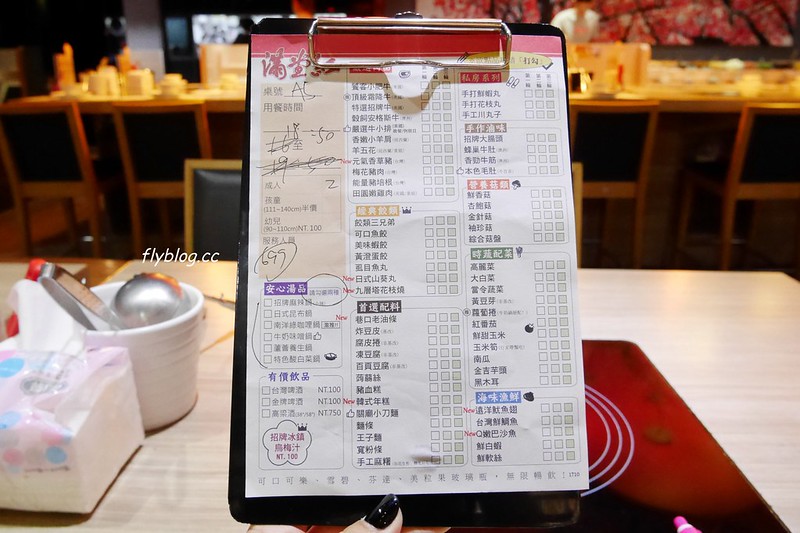 滿堂紅
桌號 A6
用餐時間
至
成人 2
孩童
(111~140cm)半價
幼兒
(90~110cm)NT.100
服務人員
699
安心湯品
招牌麻辣鍋
日式昆布鍋
南洋綠咖哩鍋
牛奶味噌鍋
蘆薈養生鍋
特色酸白菜鍋
有價飲品
台灣啤酒 NT.100
金牌啤酒 NT.100
高粱酒 NT.750
招牌冰鎮
烏梅汁
NT.100
饗宴小肥牛
頂級霜降牛
特選招牌牛
穀飼安格斯牛
嚴選牛小排
香嫩小羊肩
羊五花
New 元氣香草豬
梅花豬肉
能量豬培根
田園嫩雞肉
經典餃類
餃類三兄弟
可口魚餃
美味蝦餃
黃澄蛋餃
虱目魚丸
New 日式山葵丸
New 九層塔花枝燒
首選配料
巷口老油條
炸豆皮
腐皮捲
凍豆腐
百頁豆腐
蒟蒻絲
豬血糕
New 韓式年糕
關廟小刀麵
麵條
王子麵
寬粉條
手工麻糬
私房系列
手打鮮蝦丸
手打花枝丸
手工川丸子
手作滷味
招牌大腸頭
蜂巢牛肚
香勁牛筋
本色毛肚
營養菇類
鮮香菇
杏鮑菇
金針菇
袖珍菇
綜合菇盤
時蔬配菜
高麗菜
大白菜
當令蔬菜
黃豆芽
蘿蔔捲
紅番茄
鮮甜玉米
玉米筍
南瓜
金吉芋頭
黑木耳
海味漁鮮
New 遠洋魷魚翅
台灣鮮鯛魚
New Q嫩巴沙魚
鮮白蝦
鮮軟絲
可口可樂、雪碧、芬達、美粒果玻璃瓶，無限暢飲！
flyblog.cc